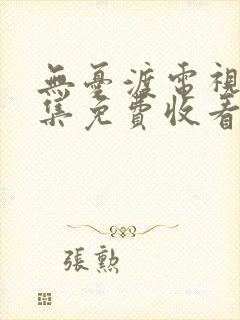 無憂渡電視
集免費收看
張勲